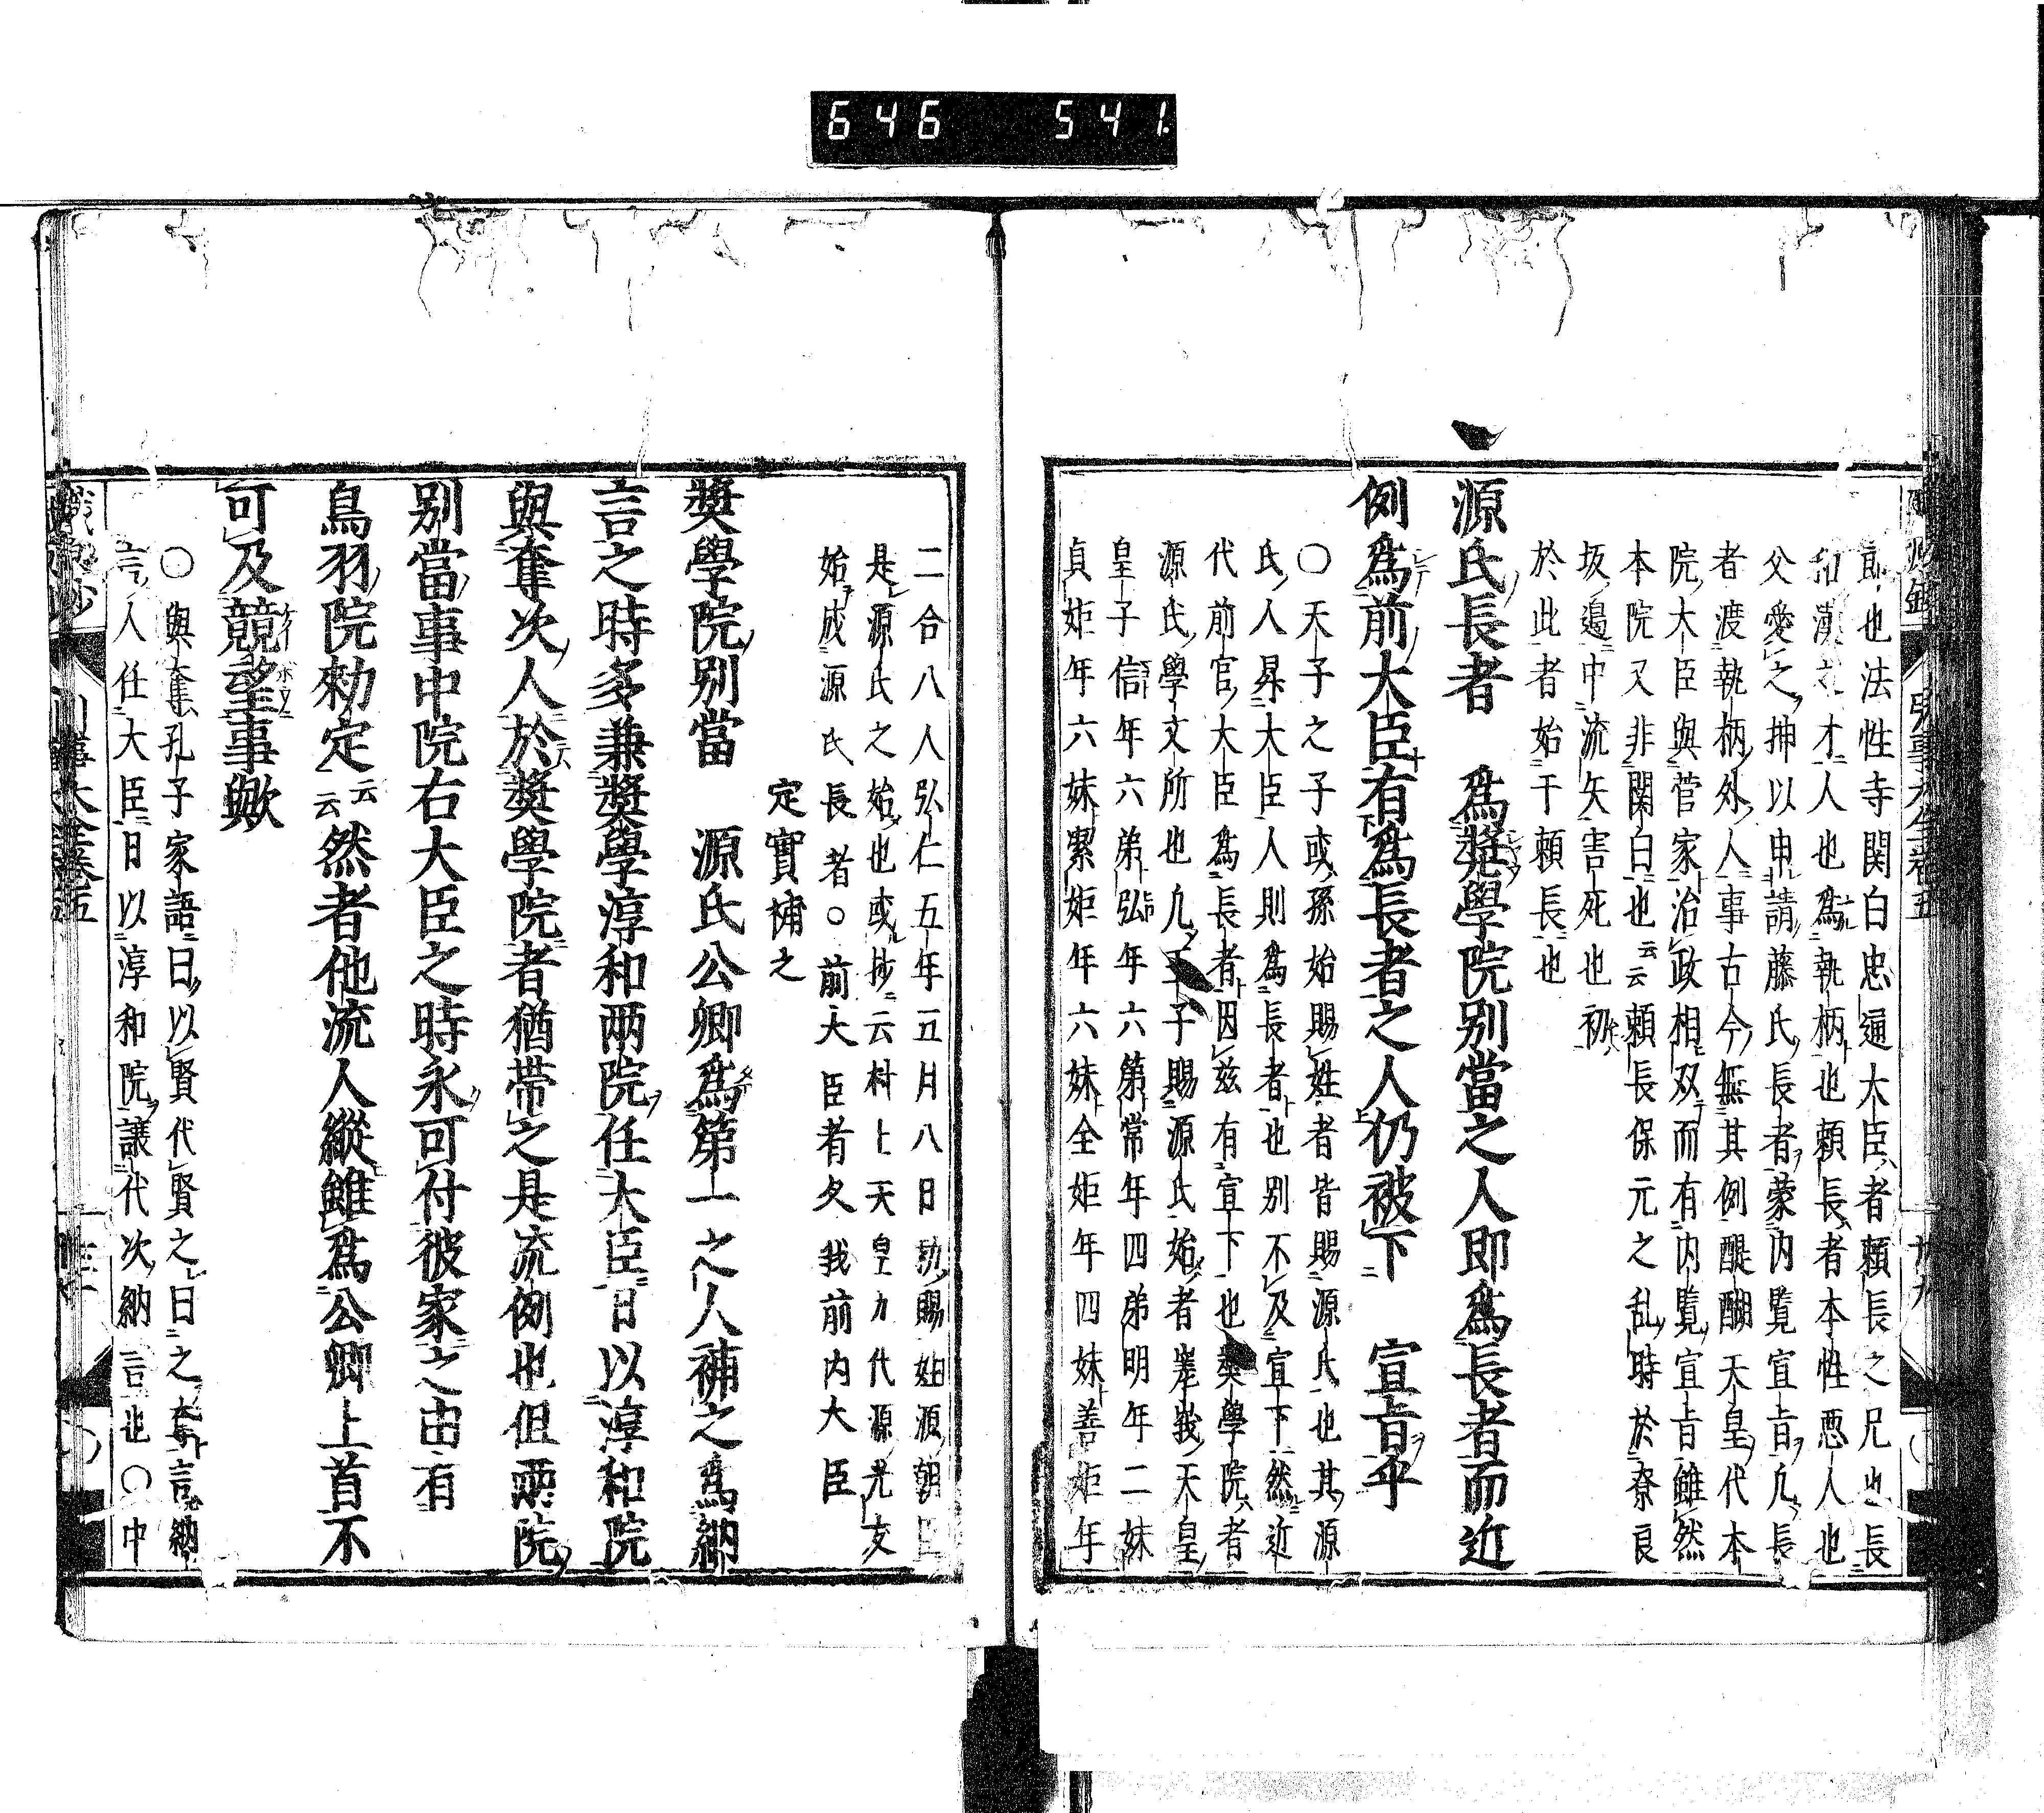 646 541.
即也法性寺関白忠通大臣者頼長之兄也長
和漢之才人也為執柄也頼長者本性悪人也
父愛之抑以申請藤氏長者蒙内覧宣旨凡長
者渡執柄外人事古今無其例醍醐天皇代本
院大臣與菅家治政相双而有内覧宣旨雖然
本院又非関白也云云頼長保元之乱時於奈良
坂邉中流矢害死也初
於此者始于頼長也
源氏長者　為奬学院別當之人即為長者而近
例為前大臣有為長者之人仍被下　宣旨乎
○天子之子或孫始賜姓者皆賜源氏也其源
氏人昇大臣人則為長者也別不及宣下然近
代前官大臣為長者因茲有宣下也奬學院者
源氏學文所也凡王子賜源氏始者嵯峩天皇
皇子信年六弟弘年六第常年四弟明年二妹
貞姫年六妹潔姫年六妹全姫年四妹善姫年
二合八人弘仁五年五月八日勅賜姓源朝臣
是源氏之始也或抄云村上天皇力代源光友
始成源氏長者○前大臣者久我前内大臣
定實補之
奬學院別當　源氏公卿為第一之人補之為納
言之時多兼奬學淳和兩院任大臣日以淳和院
與奪次人於奬學院者猶帯之是流例也但兩院
別當事中院右大臣之時永可付彼家之由有
鳥羽院勅定云云然者他流人縱雖為公卿上首不
可及競望事歟
○與奪孔子家語曰以賢代賢之曰之奪言納
言人任大臣日以淳和院譲代次納言也○中